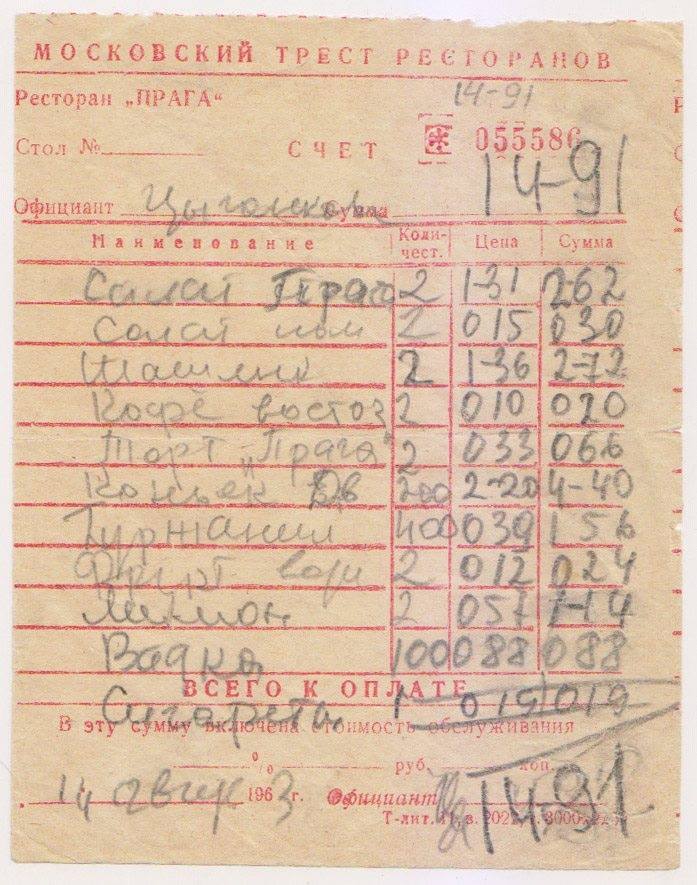 МОСКОВСКИЙ ТРЕСТ РЕСТОРАНОВ
Ресторан „ПРАГА“ 14-91
Стол № СЧЕТ 055586
Официант Сумма 14-91
Наименование Коли-чест. Цена Сумма
Салат Прага 2 1-31 2-62
Салат 2 015 030
Шашлык 2 1-36 2-72
Кофе восточ 2 010 020
Торт „Прага" 2 033 066
Коньяк 200 2-20 4-40
Гуржани 400 039 1 56
Фрукт вода 2 012 024
Лимон 2 057 1-14
Водка 100 088 088
ВСЕГО К ОПЛАТЕ
Сигареты 1 019 019
В эту сумму включена стоимость обслуживания
% руб. коп.
14 август 1963 г. Официант 14-91
Т-лит.